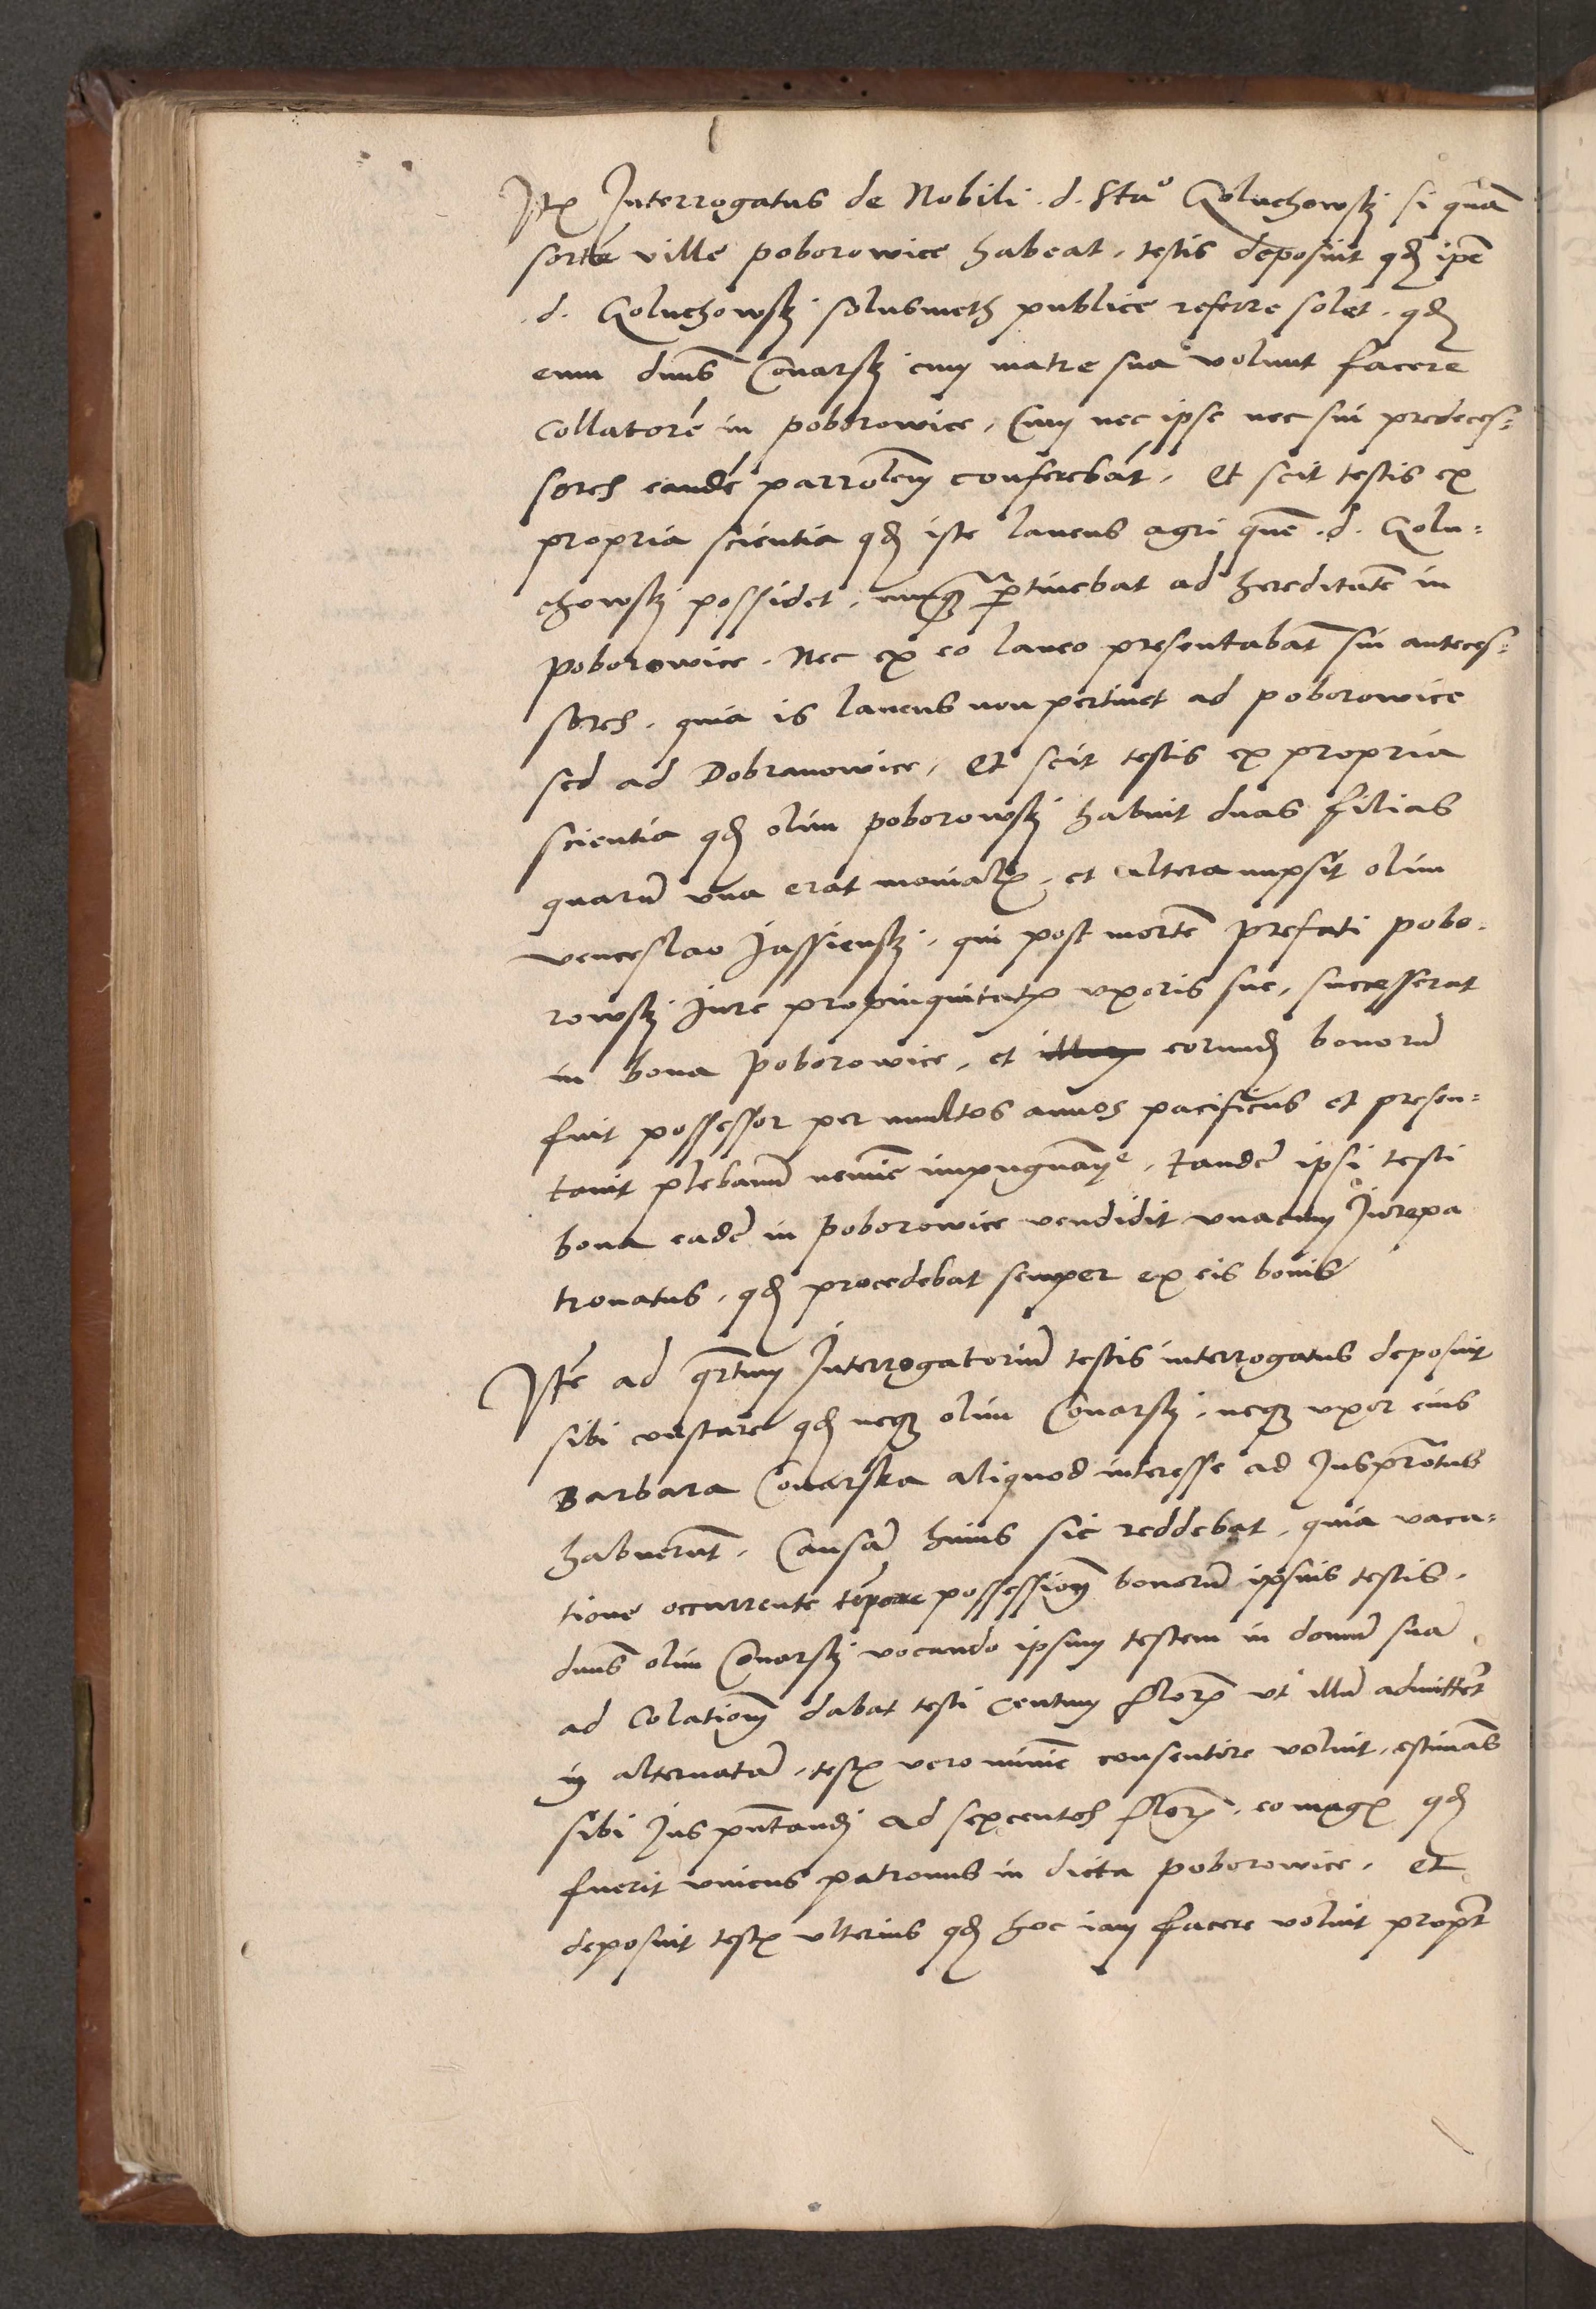 Itꝫ Interrogatus de Nobili .d. Stāo Goluchowskj si quā
sortē ville poborowice habeat, testis deposuit qđ ipē
.d. Goluchowskj solusmeth publice referre solet, qđ
eum dnūs Conarskj cum matre sua volunt facere
collatorē in poborowice, Cum nec ipse nec sui predeces:
sores eandē parrōlem conferebāt, Et scit testis ex
propria scientia qđ iste laneus agri quē .d. Golu:
chowskj possidet, nunꝗ ꝑtinebat ad hereditatē in
poborowice. Nec ex eo laneo presentabāt sui anteces:
sores, quia is laneus non pertinet ad poborowice
sed ad Dobranowice, Et scit testis ex propria
scientia qđ olim poborowskj habuit duas filias
quarū vna erat monialꝫ, et altera nupsit olim
venceslao Jassienskj, qui post mortē prefati pobo:
rowskj Jure propinquitatꝫ vxoris sue, successerat
in bona poborowice, et eorundē bonorū
fuit possessor per multos annos pacificus et presen:
tauit plebanū nemīe impugnāte, tandē ipsi testi
bona eadē in poborowice vendidit vnacum Jurepa
tronatus, qđ procedebat semper ex eis bonis
Itē ad qrtum Interrogatoriū testis interrogatus deposuit
sibi constare qđ neqꝫ olim Conarskj, neqꝫ vxor eius
Barbara Conarska aliquod interesse ad Juspr̄otus
habuerūt, Causā huius sic reddebat, quia vaca:
tione occurrente tēpore possessionꝫ bonorū ipsius testis,
dnūs olim Conarskj vocando ipsum testem in domū suā
ad Colationꝫ dabat testi centum florꝫ vt illū admittēt
in alternatā, testꝫ vero minīe consentire voluit, estimās
sibi Jus pn̄tandj ad sexcentos florꝫ, eo magꝫ qđ
fuerit vnicus patronus in dicta poborowice, et
deposuit testꝫ vlterius qđ hoc iam facere voluit propt̄